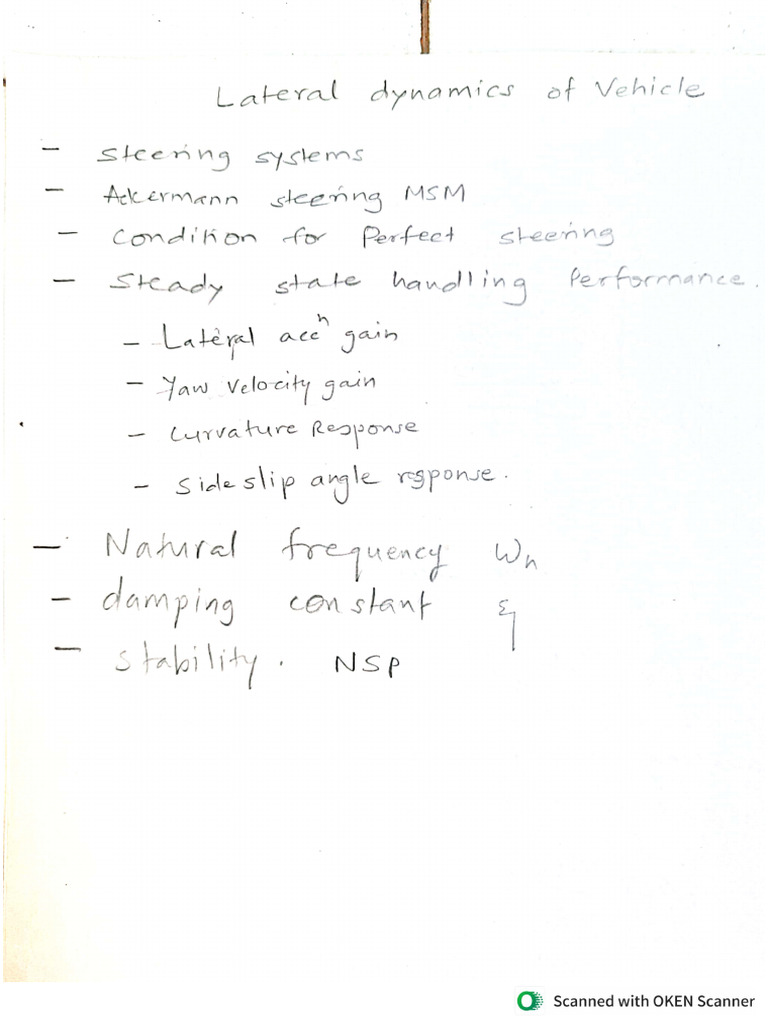 Lateral dynamics of Vehicle
- Steering systems
- Ackermann steering MSM
- Condition for Perfect steering
- Steady state handling Performance.
- Lateral accⁿ gain
- Yaw velocity gain
- Curvature Response
- Side slip angle response.
- Natural frequency Wn
- damping constant ξ
- stability. NSP
Scanned with OKEN Scanner